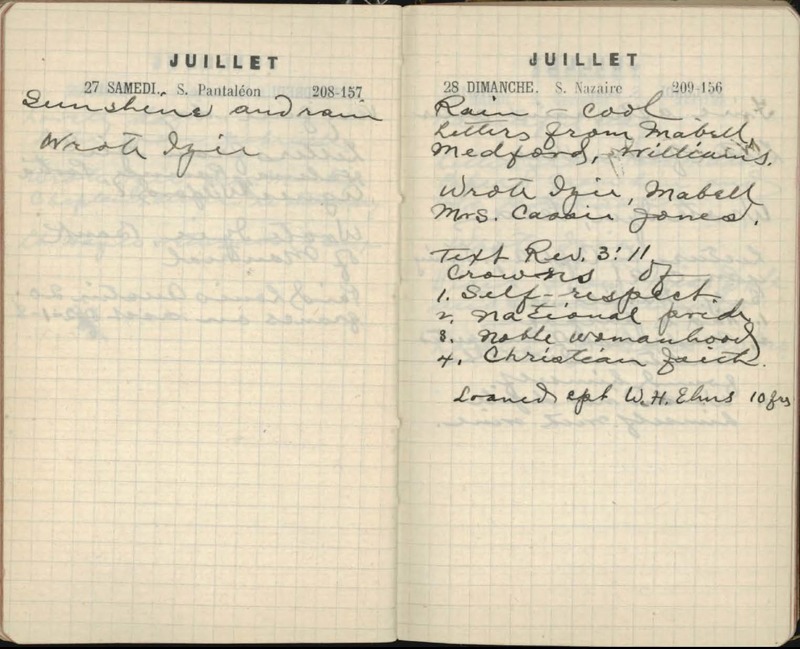 JUILLET
27 SAMEDI. S. Pantaléon 208-157
Sunshine and rain
Wrote Izie
JUILLET
28 DIMANCHE. S. Nazaire 209-156
Rain - cool
Letters from Mabell,
Medford, Williams.
Wrote Izie, Mabell
Mrs. Cassie Jones.
Text Rev. 3:11
Crowns of
1. Self-respect.
2. National pride
3. Noble womanhood
4. Christian faith.
Loaned cpt W.H. Elms 10 frs